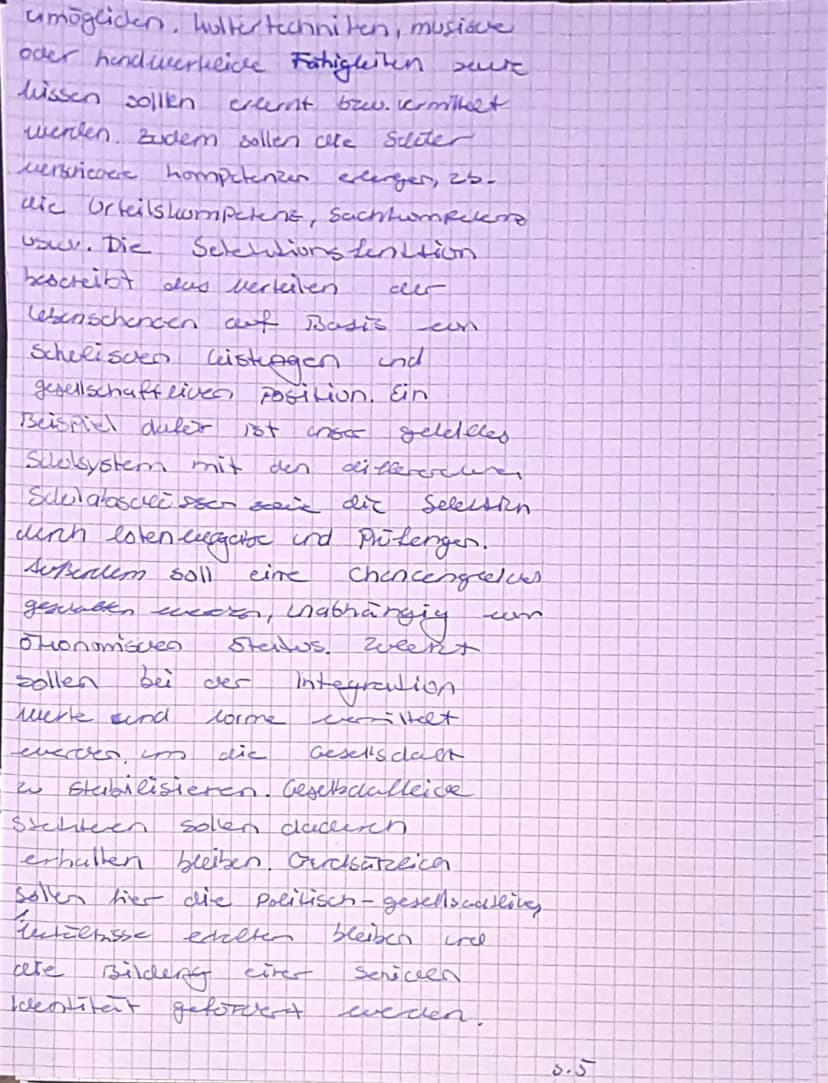 ermöglichen. Kulturtechniken, musische
oder handwerkliche Fähigkeiten sowie
Wissen sollen erlernt bzw. vermittelt
werden. Zudem sollen die Schüler
verschiedene Kompetenzen erlangen, z.B.
die Urteilskompetenz, Sachkompetenz
usw. Die Selektionsfunktion
beschreibt das Verteilen der
Lebenschancen auf Basis von
schulischen Leistungen und
gesellschaftlichen Position. Ein
Beispiel dafür ist unser
Schulsystem mit den
Schulabschlüssen sowie die Selektion
durch Notenvergabe und Prüfungen.
Außerdem soll eine
geschaffen werden, unabhängig vom
ökonomischen Status. Zuletzt
sollen bei der Integration
Werte und Norme vermittelt
werden, um die Gesellschaft
zu stabilisieren. Gesellschaftliche
sollen dadurch
erhalten bleiben. Grundsätzlich
sollen hier die politisch-gesellschaftlichen
erhalten bleiben und
die Bildung einer sozialen
Identität gefördert werden.
S. 5